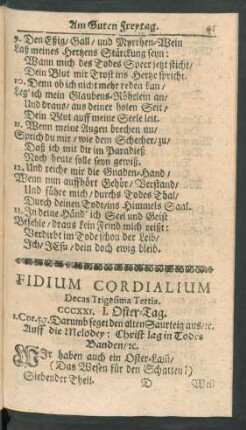 Am Guten Freytag. 45
9. Den Eßig / Gall / und Myrrhen-Wein
Laß meines Hertzens Stärckung seyn:
Wann mich des Todes Speer jetzt sticht /
Dein Blut mir Trost ins Hertze spricht.
10. Denn ob ich nicht mehr reden kan /
Leg' ich mein Glaubens-Röhrlein an /
Und draus / aus deiner holen Seit /
Dein Blut auff meine Seele leit.
11. Wenn meine Augen brechen nu /
Sprich du mir / wie dem Schecher / zu /
Daß ich mit dir im Paradieß
Noch heute solle seyn gewiß.
12. Und reiche mir die Gnaden-Hand /
Wenn nun auffhört Gehör / Verstand /
Und führe mich / durchs Todes Thal /
Durch deinen Tod / ins Himmels Saal.
13. In deine Händ' ich Seel und Geist
Befehle / draus kein Feind mich reißt:
Verdirbt im Tode schon der Leib /
Ich / JEsu / dein doch ewig bleib.
FIDIUM CORDIALIUM
Decas Trigesima Tertia.
CCCXXI. I. Oster-Tag.
1. Cor. 5.7. Darumb feget den alten Saurteig aus / ꝛc.
Auff die Melodey: Christ lag in Todes
Banden / ꝛc.
WIr haben auch ein Oster-Lam /
(Das Wesen für den Schatten!)
Siebender Theil. D Weil